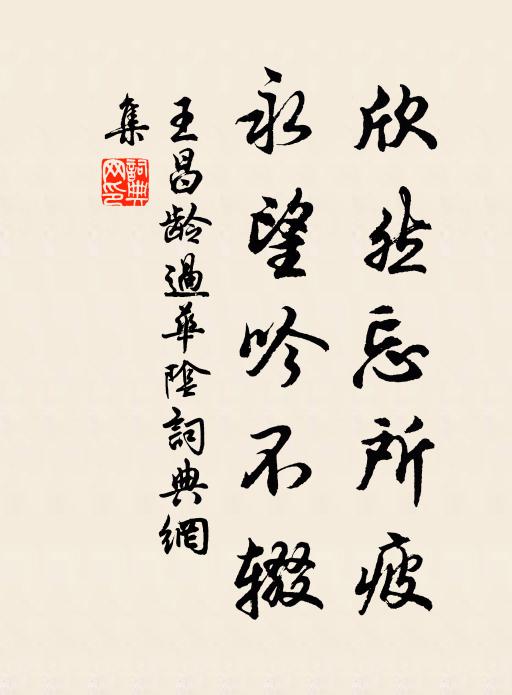 欣然忘所疲
永望吟不辍
王昌龄過華陰詞典網
集
詞典
网印